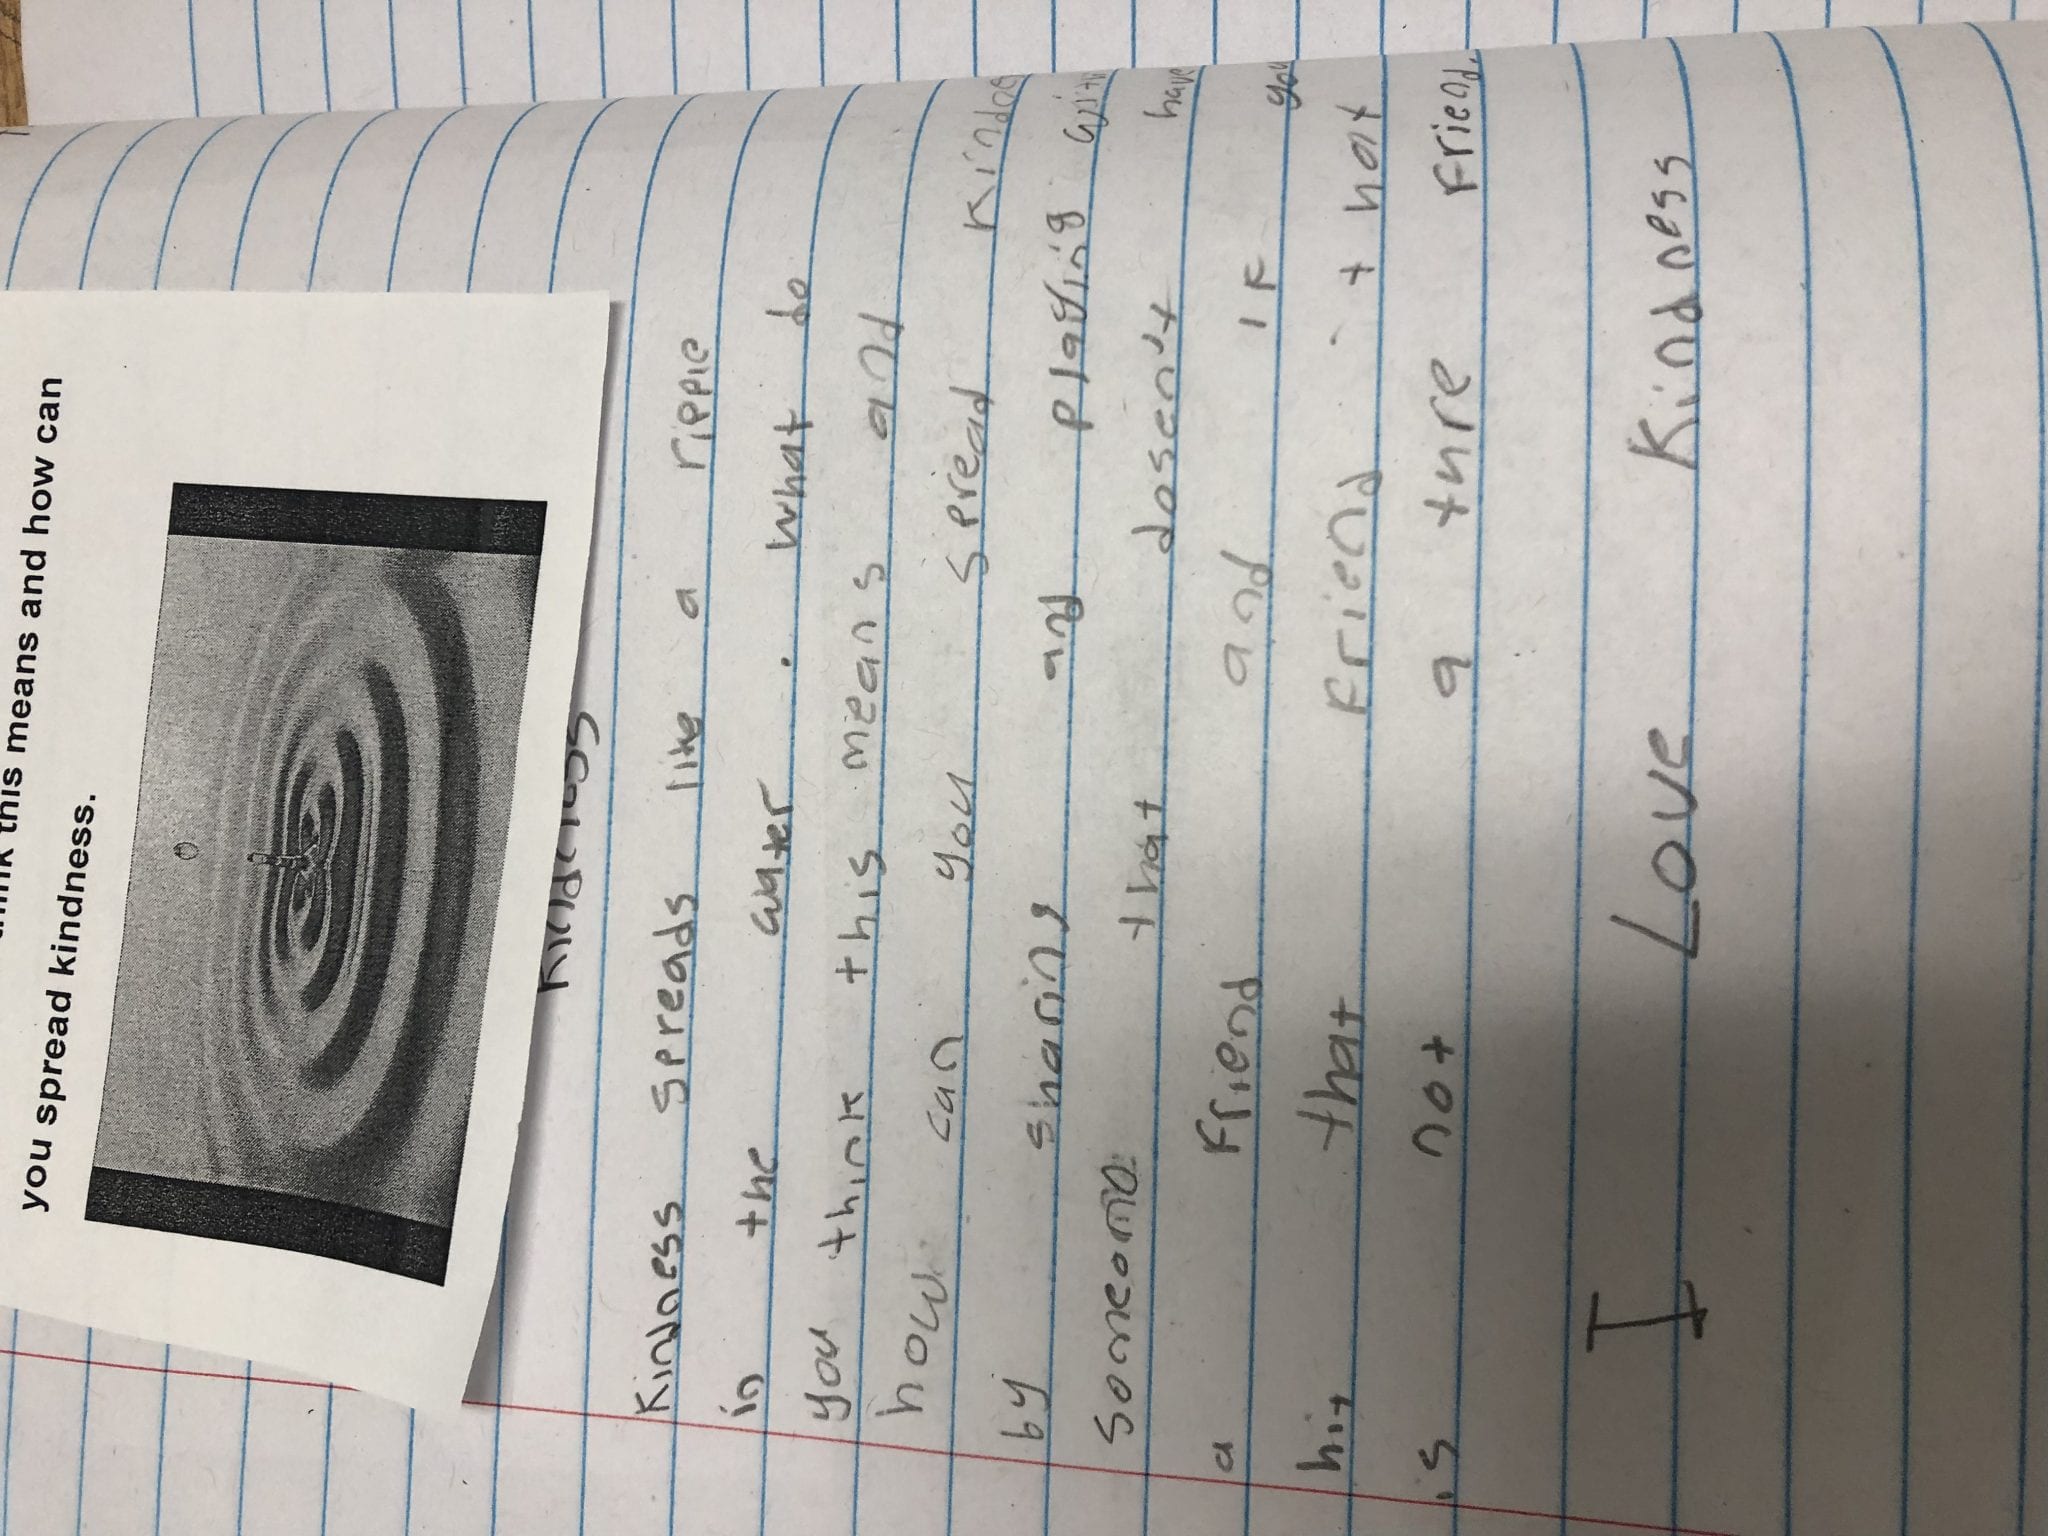 this means and how can
you spread kindness.
Kindness spreads like a ripple
in the water. what do
you think this means and
how can you spread Kindos
by sharing and playing with
someome that dosen't have
a friend and if you
hit that friend that
is not a ture friend.
I Love Kindness